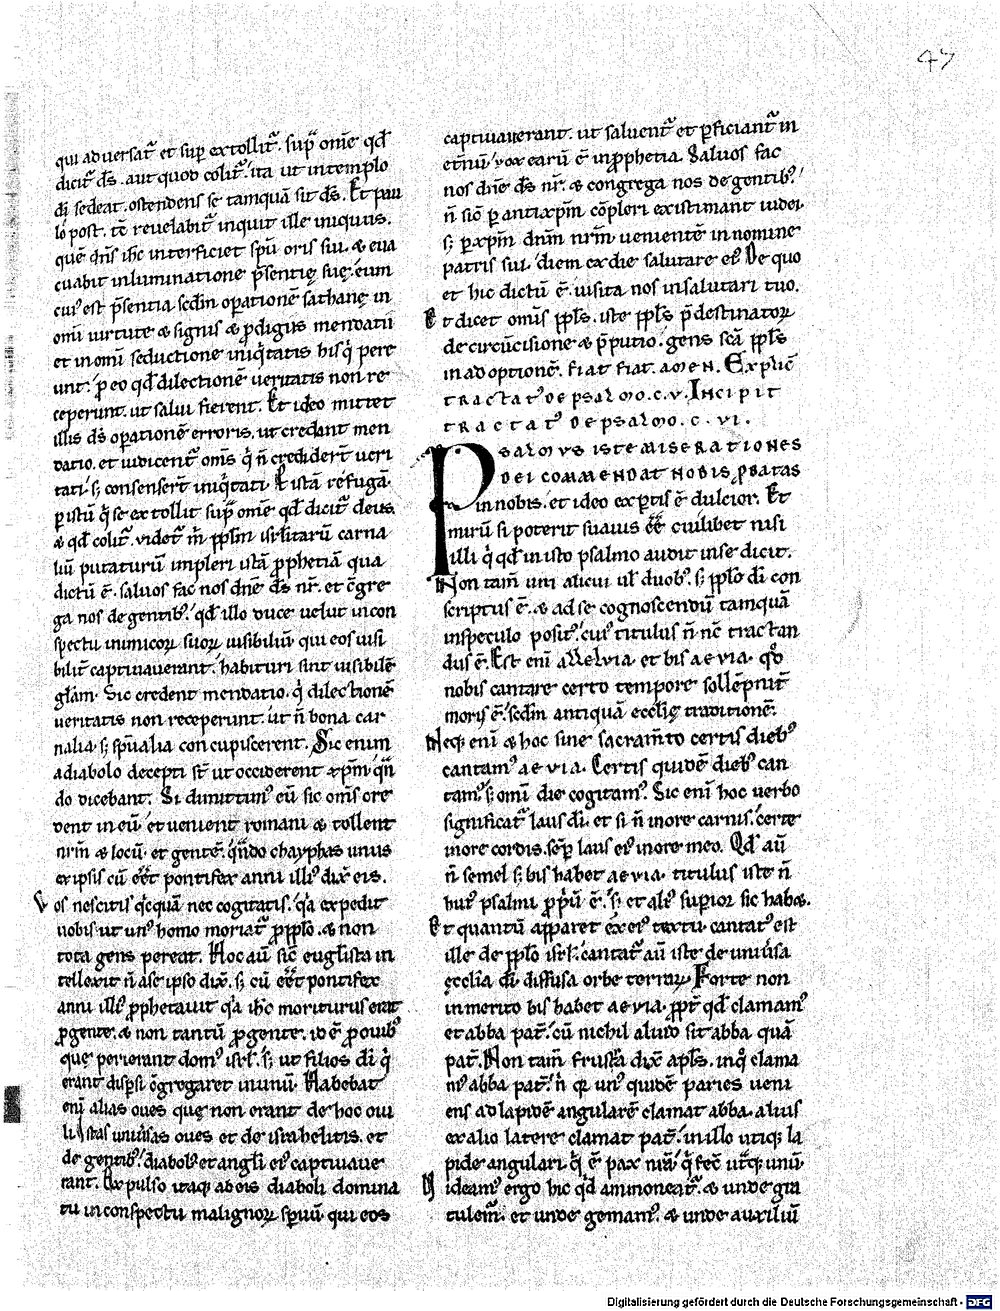 47
qui aduersat̄ et sup̄ extollit̄. sup̄ om̄e qd̄
dicit̄ d̄s. aut quod colit̄. ita ut in templo
d̄i sedeat. ostendens se tamquā sit d̄s. Et pau
lo post. tc̄ reuelabit̄ inquit ille iniquus.
quē dn̄s ih̄c interficiet sp̄u oris sui. & eua
cuabit inluminatione p̄sentię suę. eum
cui' est p̄sentia scd̄m op̄ationē sathanę in
om̄i uirtute & signis & p̄digiis mendatii
et in om̄i seductione iniq̇tatis his q̇ pere
unt. p̄ eo qd̄ dilectionē ueritatis non re
ceperunt. ut salui fierent. Et ideo mittet
illis d̄s op̄ationē erroris. ut credant men
datio. et iudicent̄ om̄s q̇ n̄ credider̄t ueri
tati. s; consenser̄t iniq̇tati. Et istā refugā.
p̄ istū q̇ se extollit sup̄ om̄e qd̄ dicit̄ deus
& qd̄ colit̄. uidet̄ m̄ ppl̄m isrl̄itarū carna
liū putaturū impleri istā p̄phetiā qua
dictū ē. saluos fac nos dn̄e d̄s nr̄. et c̄gre
ga nos de gentib'. qd̄ illo duce uelut in con
spectu inimicoꝝ suoꝝ uisibiliū qui eos uisi
bilit̄ captiuauerant. habituri sint uisibilē
glām. Sic credent mendatio. q̇ dilectionē
ueritatis non receperunt. ut n̄ bona car
nalia. s; sp̄ualia concupiscerent. Sic enim
a diabolo decepti st̄ ut occiderent xp̄m. qn̄
do dicebant. Si dimittim' eū sic om̄s cre
dent in eū. et uenient romani & tollent
nrm̄ & locū. et gentē. qn̄do chayphas unus
ex ipsis cū eēt pontifex anni illi' dix̄ eis.
Vos nescitis q̇cquā nec cogitatis. q̇a expedit
uobis ut un' homo moriat̄ p̄ pplo. & non
tota gens pereat. Hoc aū sic eugl̄ista in
tellexit n̄ a se ipso dix̄. s; cū eēt pontifex
anni illi' p̄phetauit q̇a ih̄c moriturus erat
p̄ gente. & non tantū p̄ gente. id ē p̄ ouib'
quę perierant dom' isrl̄. s; ut filios d̄i q̇
erant disp̄si c̄gregaret in unū. Habebat
eni alias oues quę non erant de hoc oui
li. Istas uniu̇sas oues et de israhelitis. et
de gentib'. diabol' et angl̄i ei' captiuaue
rant. Expulso itaq; ab eis diaboli domina
tu in conspectu malignoꝝ sp̄uū. qui eos
captiuauerant. ut saluent̄ et p̄ficiant̄ in
et̄nū. uox earū ē in p̄phetia. Saluos fac
nos dn̄e d̄s nr̄. & congrega nos de gentib'.
n̄ sic̄ p̄ antixp̄m c̄pleri existimant iudei
s; p̄ xp̄m dn̄m nrm̄ uenientē in nomine
patris sui. diem ex die salutare ei'. De quo
et hic dictū ē. uisita nos in salutari tuo.
Et dicet om̄is ppl̄s. iste ppl̄s p̄destinatoꝝ
de circūcisione & p̄putio. gens scā ppl̄s
in adoptionē. fiat fiat. amen. Explic̄
tractat' de psalmo. c. v. Incipit
tractat' de psalmo. c. vi.
Psalmvs iste miserationes
dei commendat nobis p̄batas
in nobis. et ideo exp̄tis ē dulcior. Et
mirū si poterit suauis eēē cuilibet nisi
illi q̇ qd̄ in isto psalmo audit in se dicit.
Non tam̄ uni alicui ul̄ duob'. s; pplo d̄i con
scriptus ē. & ad se cognoscendū tamquā
in speculo posit'. cui' titulus n̄ nc̄ tractan
dus ē. Est eni allelvia. et bis aevia. qd̄
nobis cantare certo tempore sollēpnit̄
moris ē. scd̄m antiquā ecclię traditionē.
Neq; eni & hoc sine sacram̄to certis dieb'
cantam' aevia. Certis quidē dieb' can
tam'. s; om̄i die cogitam'. Sic eni hoc uerbo
significat̄ laus d̄i. et si n̄ in ore carnis. certe
in ore cordis. sēp̄ laus ei' in ore meo. Qd̄ aū
n̄ semel s; bis habet aevia. titulus iste n̄
hui' psalmi p̄p̄ū ē. s; et ali' sup̄ior sic habet.
Et quantū apparet ex ei' textu. cantat' est
ille de pplo isrl̄. cantat̄ aū iste de uniu̇sa
ęcclīa d̄i diffusa orbe terraꝝ. Forte non
inmerito bis habet aevia. pp̄t qd̄ clamam'
et abba pat̄. cū nichil aliud sit abba quā
pat̄. Non tam̄ frustra dix̄ apl̄s. in q̇ clama
m' abba pat̄. n̄ q̇ un' quidē paries ueni
ens ad lapidē angularē clamat abba. alius
ex alio latere clamat pat̄. in illo utiq; la
pide angulari. q̇ ē pax nr̄a. q̇ fec̄ ut̄q; unū.
Videam' ergo hic qd̄ ammoneat̄. & unde gra
tulem̄. et unde gemam'. & unde auxiliū
Digitalisierung gefördert durch die Deutsche Forschungsgemeinschaft - DFG